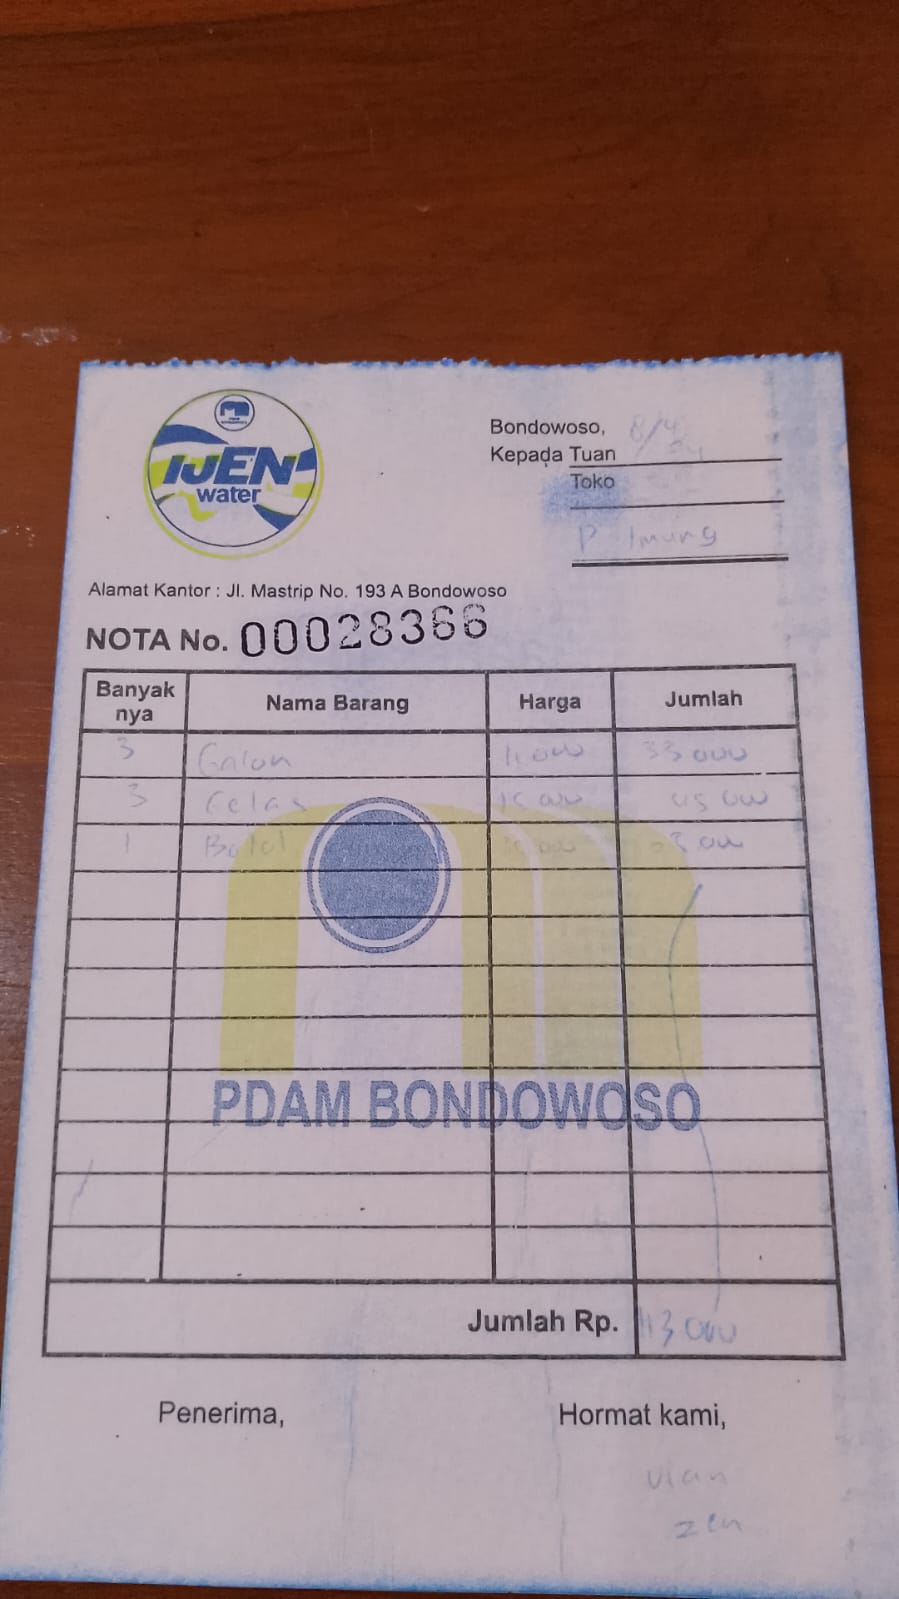 IJEN
water
Bondowoso, 8/4
Kepada Tuan
Toko
P Imung
Alamat Kantor : Jl. Mastrip No. 193 A Bondowoso
NOTA No. 00028366
Banyak nya Nama Barang Harga Jumlah
3 Galon 11 000 33 000
3 Gelas 15 000 45 000
1 Botol
PDAM BONDOWOSO
Jumlah Rp. 113 000
Penerima, Hormat kami,